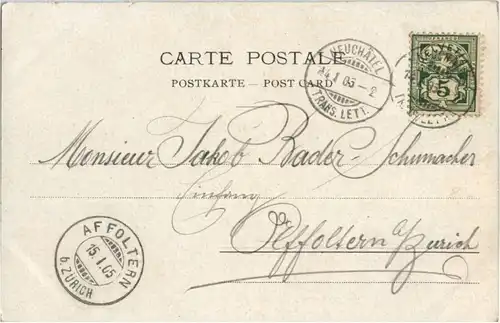 CARTE POSTALE
POSTKARTE – POST CARD
NEUCHÂTEL
14.I 05 – 2
TRANS. LETT.
HELVETIA
5
Monsieur Jakob Bader-Schumacher
Einfang
Affoltern a/Zürich
AFFOLTERN
15.I.05
b. ZÜRICH